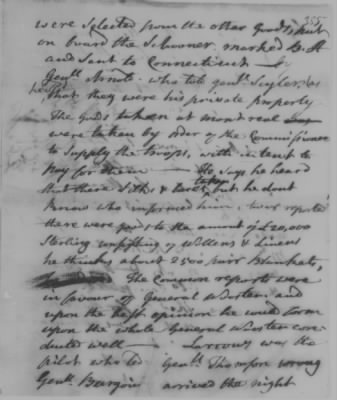 355
were Selected from the other Goods, put
on board the Schooner marked
and Sent to Connecticut
Genl. who told genl.
That they were his private property
The Goods taken at mont real
were taken by order of the Commissioner
to Supply the troops, with intent to
pay for them He Says he heard
that these Silks & were but he dont
Know who informed him, was reported
there were goods to the amount of £20,000
Sterling consisting of Wollens & Linens
he thinks about 2500 pair Blankets,
The Common reports were
in favour of General Wooster and
upon the best opinion he could form
upon the whole General Wooster con
ducted well was the
pilot who led Genll. Thomson wrong
Genll. Burgoin arrived the night